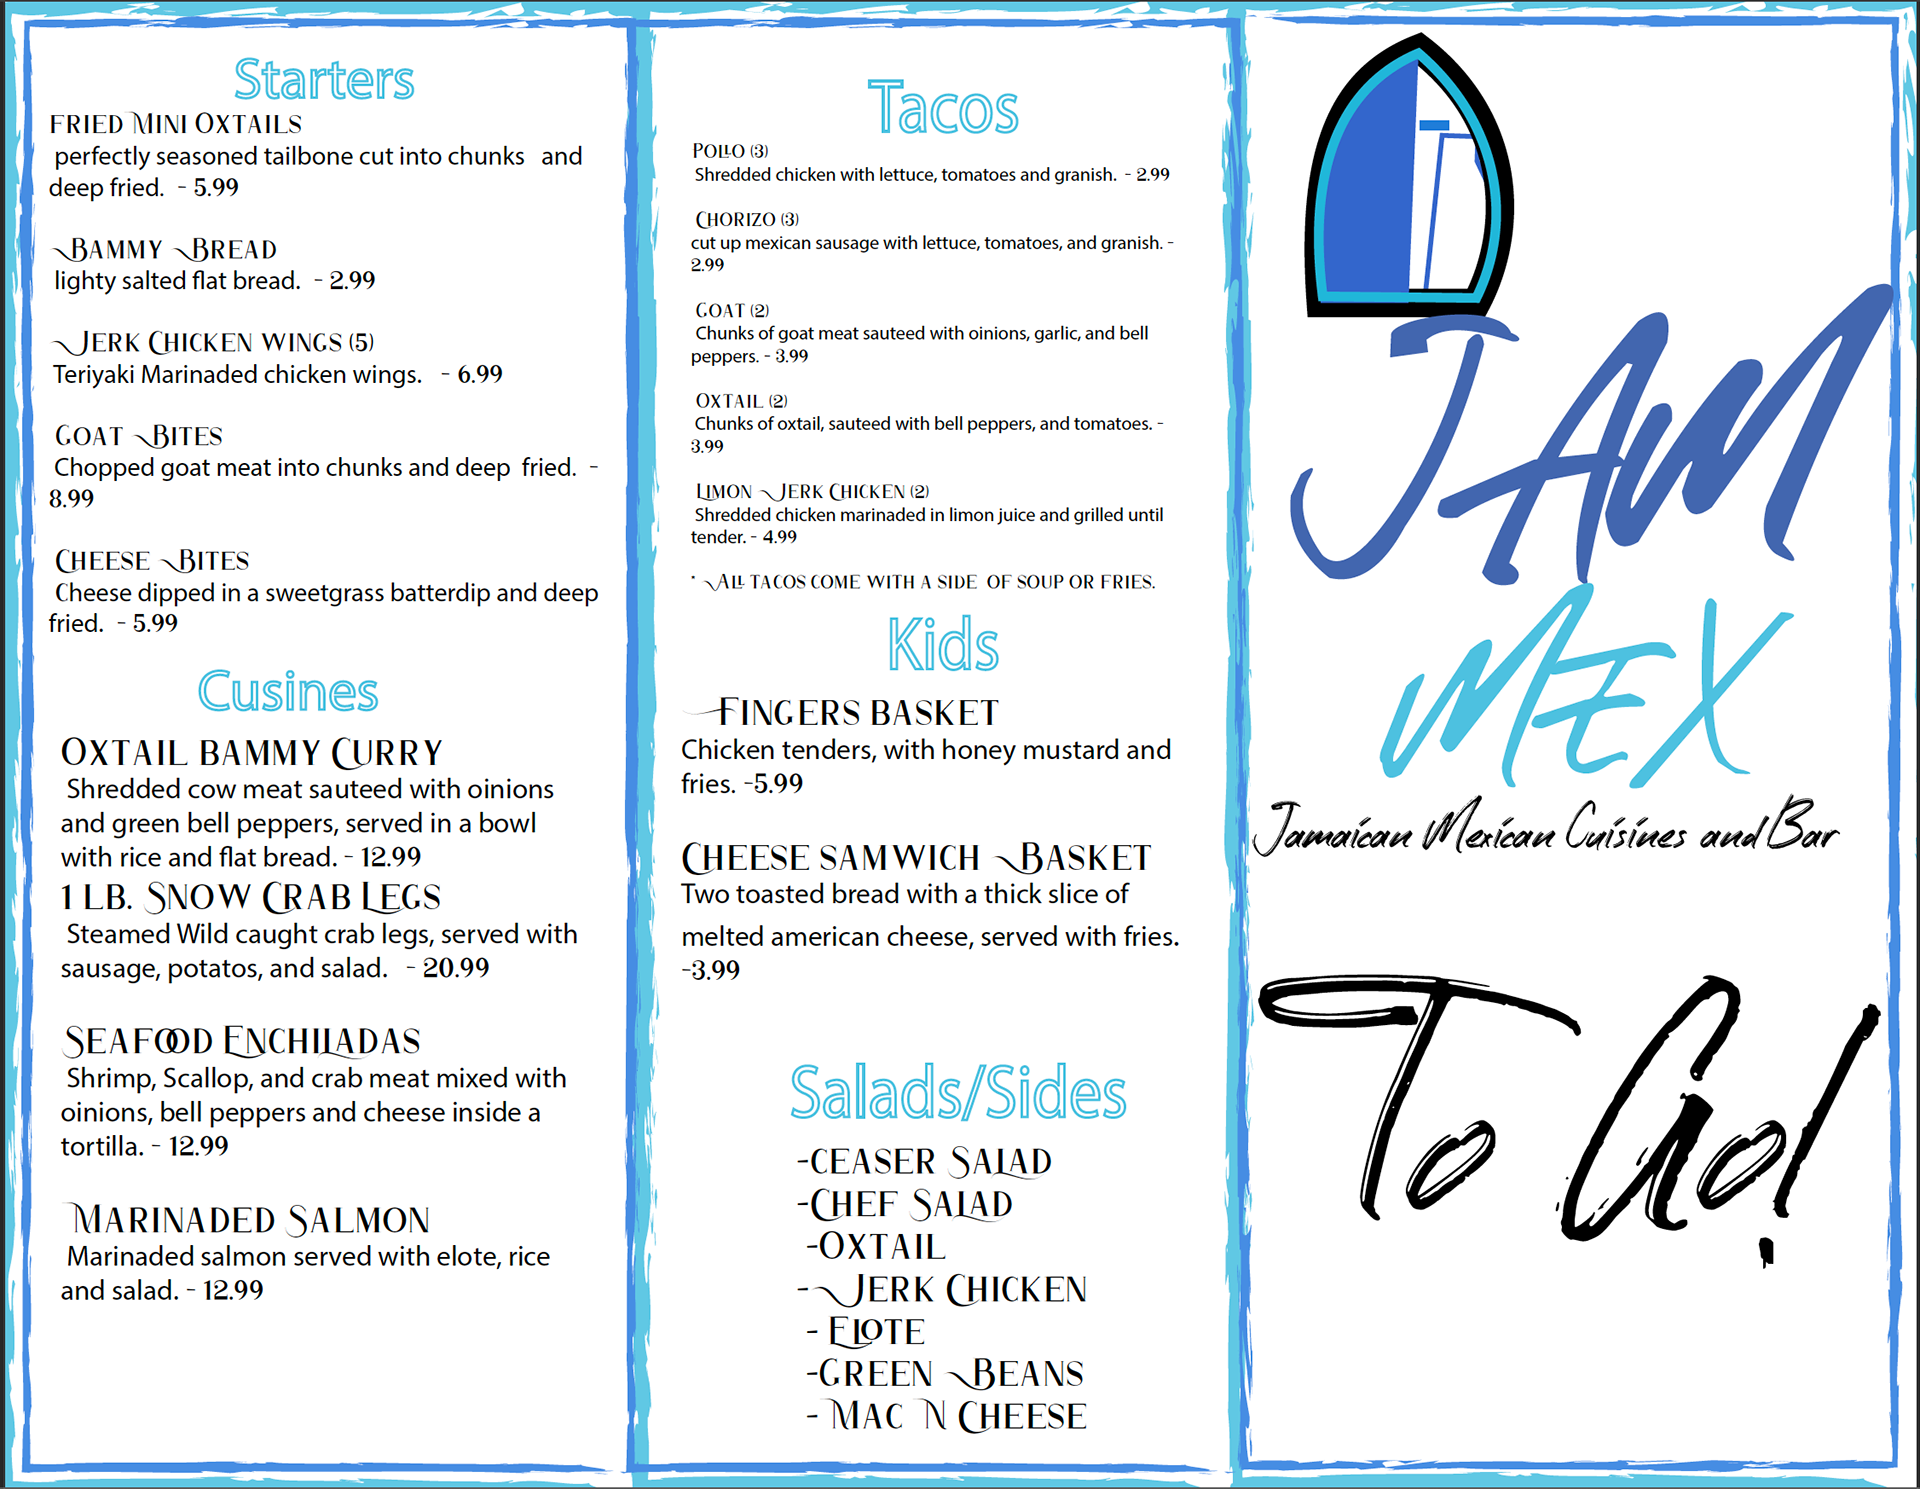 Starters
FRIED MINI OXTAILS
perfectly seasoned tailbone cut into chunks and
deep fried. - 5.99
BAMMY BREAD
lighty salted flat bread. - 2.99
JERK CHICKEN WINGS (5)
Teriyaki Marinaded chicken wings. - 6.99
GOAT BITES
Chopped goat meat into chunks and deep fried. -
8.99
CHEESE BITES
Cheese dipped in a sweetgrass batterdip and deep
fried. - 5.99
Cusines
OXTAIL BAMMY CURRY
Shredded cow meat sauteed with oinions
and green bell peppers, served in a bowl
with rice and flat bread. - 12.99
1 LB. SNOW CRAB LEGS
Steamed Wild caught crab legs, served with
sausage, potatos, and salad. - 20.99
SEAFOOD ENCHILADAS
Shrimp, Scallop, and crab meat mixed with
oinions, bell peppers and cheese inside a
tortilla. - 12.99
MARINADED SALMON
Marinaded salmon served with elote, rice
and salad. - 12.99
Tacos
POLLO (3)
Shredded chicken with lettuce, tomatoes and granish. - 2.99
CHORIZO (3)
cut up mexican sausage with lettuce, tomatoes, and granish. -
2.99
GOAT (2)
Chunks of goat meat sauteed with oinions, garlic, and bell
peppers. - 3.99
OXTAIL (2)
Chunks of oxtail, sauteed with bell peppers, and tomatoes. -
3.99
LIMON JERK CHICKEN (2)
Shredded chicken marinaded in limon juice and grilled until
tender. - 4.99
* ALL TACOS COME WITH A SIDE OF SOUP OR FRIES.
Kids
FINGERS BASKET
Chicken tenders, with honey mustard and
fries. -5.99
CHEESE SAMWICH BASKET
Two toasted bread with a thick slice of
melted american cheese, served with fries.
-3.99
Salads/Sides
-CEASER SALAD
-CHEF SALAD
-OXTAIL
-JERK CHICKEN
- ELOTE
-GREEN BEANS
- MAC N CHEESE
JAM
MEX
Jamaican Mexican Cuisines and Bar
To Go!